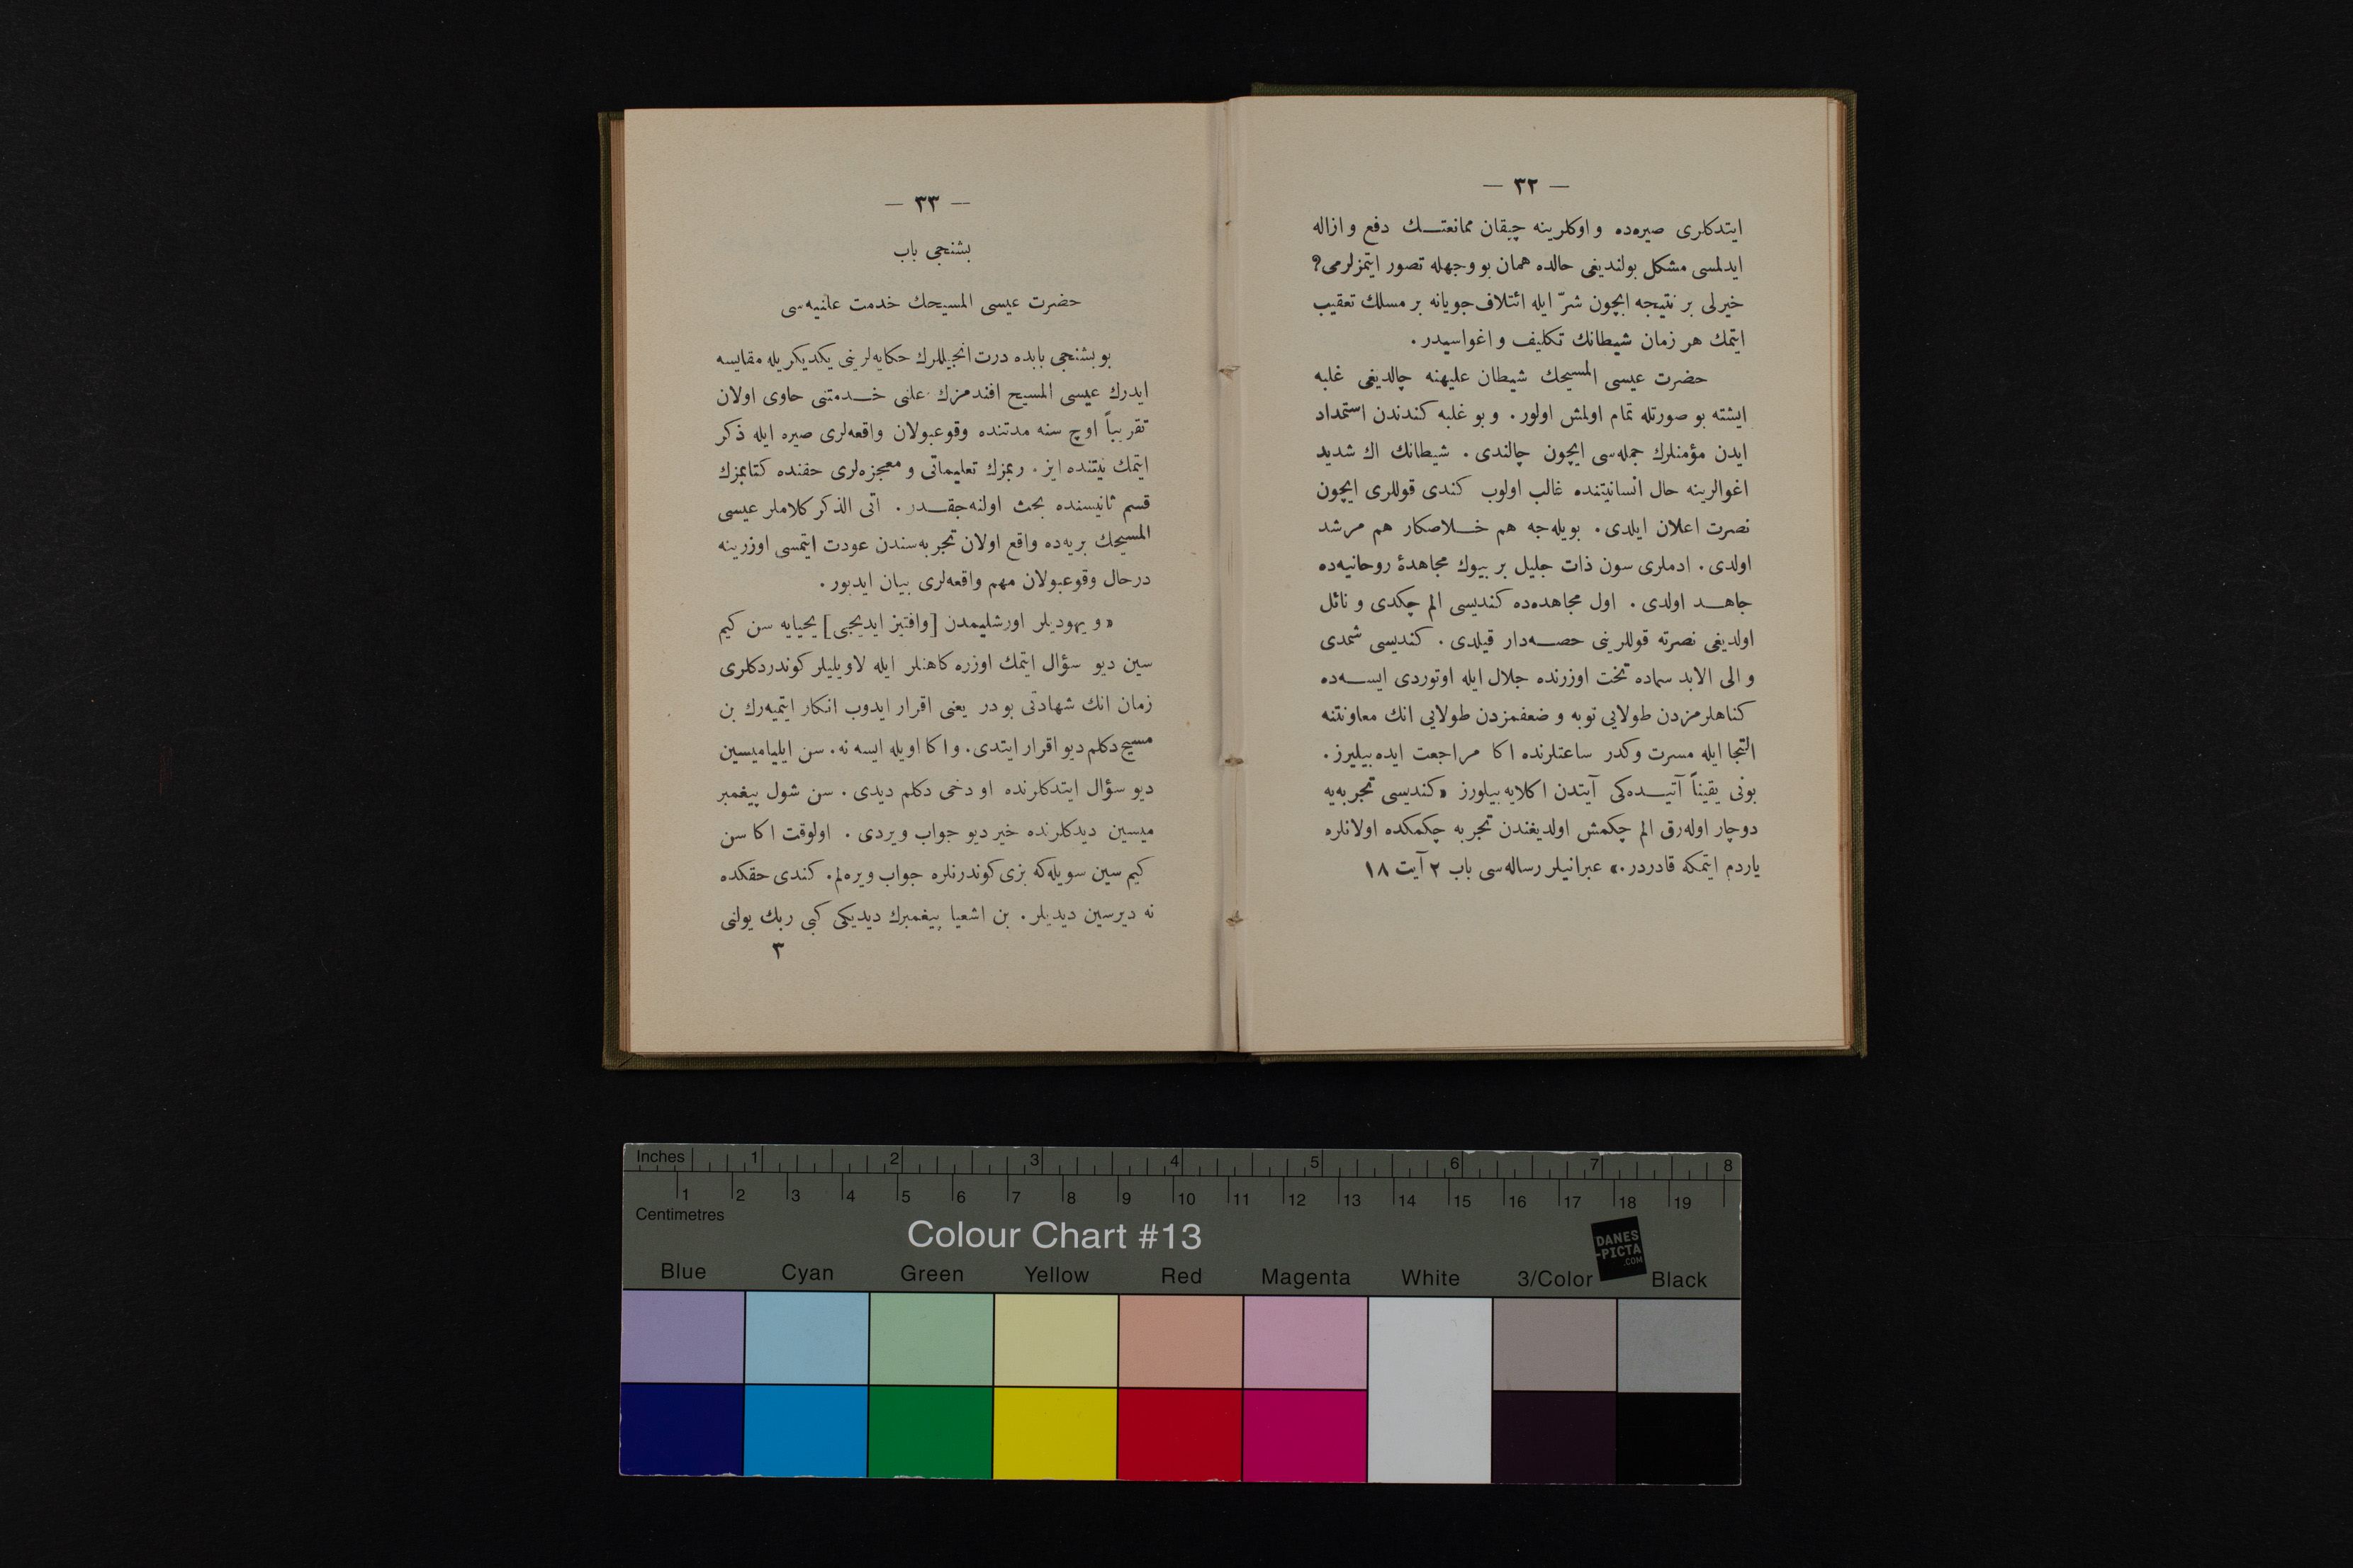 — ٣٢ —
ايتدكلرى صيره‌ده و اوكلرينه چيقان ممانعتــك دفع و ازاله
ايدلمسى مشكل بولنديغى حالده همان بو وجهله تصور ايتمزلرمى؟
خيرلى بر نتيجه ايچون شرّ ايله ائتلاف‌جويانه بر مسلك تعقيب
ايتمك هر زمان شيطانك تكليف و اغواسيدر.
حضرت عيسى المسيحك شيطان عليهنه چالديغى غلبه
ايشته بو صورتله تمام اولمش اولور. و بو غلبه كندندن استمداد
ايدن مؤمنلرك جمله‌سى ايچون چالندى. شيطانك اك شديد
اغوالرينه حال انسانيتنده غالب اولوب كندى قوللرى ايچون
نصرت اعلان ايلدى. بويله‌جه هم خــلاصكار هم مرشد
اولدى. ادملرى سون ذات جليل بر بيوك مجاهدۀ روحانيه‌ده
جاهــد اولدى. اول مجاهده‌ده كنديسى الم چكدى و نائل
اولديغى نصرته قوللرينى حصــه‌دار قيلدى. كنديسى شمدى
و الى الابد سماده تخت اوزرنده جلال ايله اوتوردى ايســه‌ده
كناهلرمزدن طولايى توبه و ضعفمزدن طولايى انك معاونتنه
التجا ايله مسرت وكدر ساعتلرنده اكا مراجعت ايده بيليرز.
بونى يقيناً آتيــده‌كى آيتدن اكلايه بيلورز «كنديسى تجربه‌يه
دوچار اوله‌رق الم چكمش اولديغندن تجربه چكمكده اولانلره
ياردم ايتمكه قادردر.» عبرانيلر رساله‌سى باب ٢ آيت ١٨
— ٣٣ —
بشنجى باب
حضرت عيسى المسيحك خدمت علنيه‌سى
بو بشنجى بابده درت انجيللرك حكايه‌لرينى يكديكريله مقايسه
ايدرك عيسى المسيح افندمزك علنى خــدمتنى حاوى اولان
تقريباً اوچ سنه مدتنده وقوعبولان واقعه‌لرى صيره ايله ذكر
ايتمك نيتنده ايز. ربمزك تعليماتى و معجزه‌لرى حقنده كتابمزك
قسم ثانيسنده بحث اولنه‌جقــدر. اتى الذكر كلاملر عيسى
المسيحك بريه‌ده واقع اولان تجربه‌سندن عودت ايتمسى اوزرينه
درحال وقوعبولان مهم واقعه‌لرى بيان ايديور.
«و يهوديلر اورشليمدن [وافتيز ايديجى] يحيايه سن كيم
سين ديو سؤال ايتمك اوزره كاهنلر ايله لاويليلر كوندردكلرى
زمان انك شهادتى بودر يعنى اقرار ايدوب انكار ايتميه‌رك بن
مسيح دكلم ديو اقرار ايتدى. و اكا اويله ايسه نه. سن ايلياميسين
ديو سؤال ايتدكلرنده او دخى دكلم ديدى. سن شول پيغمبر
ميسين ديدكلرنده خير ديو جواب ويردى. اولوقت اكا سن
كيم سين سويله‌كه بزى كوندرنلره جواب ويره‌لم. كندى حقكده
نه ديرسين ديديلر. بن اشعيا پيغمبرك ديديكى كبى ربك يولنى
٣
Inches 1 2 3 4 5 6 7 8
1 2 3 4 5 6 7 8 9 10 11 12 13 14 15 16 17 18 19
Centimetres
Colour Chart #13
DANES
-PICTA
.COM
Blue Cyan Green Yellow Red Magenta White 3/Color Black